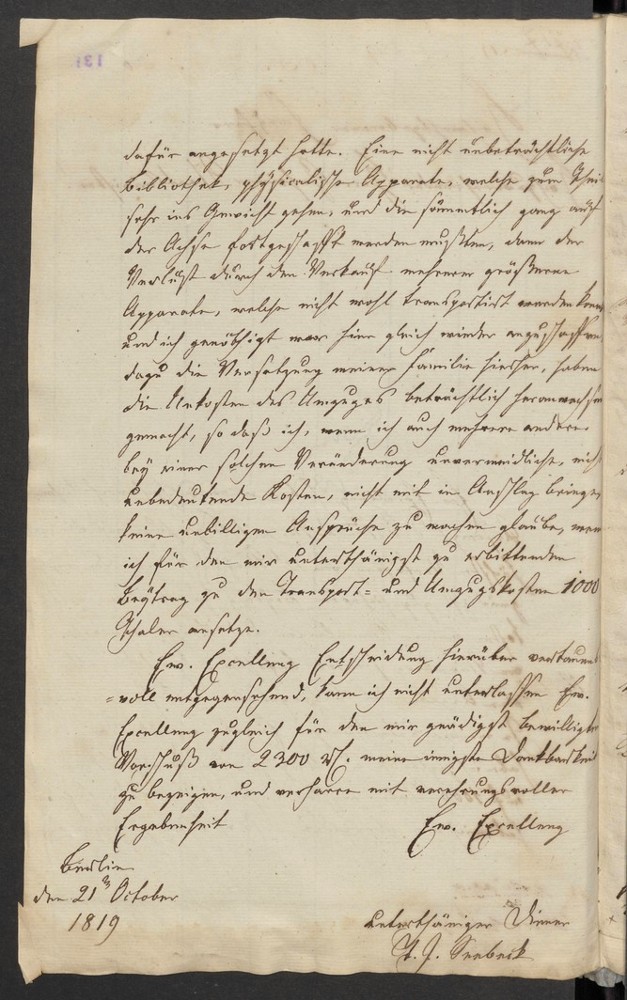 131
dafür angesetzt hatte. Eine nicht unbeträchtliche
Bibliothek, physicalische Apparate, welche zum Theil
sehr ins Gewicht gehen, und die sämmtlich ganz auf
der Achse fortgeschafft werden mußten, dann der
Verlust durch den Verkauf mehrerer größerer
Apparate, welche nicht wohl transportirt werden
und ich genöthigt war hier gleich wieder anzuschaffen
dazu die Versetzung meiner Familie hieher, haben
die Unkosten des Umzuges beträchtlich heranwachsen
gemacht, so daß ich, wenn ich auch mehrere andere
bey einer solchen Veränderung unvermeidliche, nicht
unbedeutende Kosten, nicht mit in Anschlag bringe,
keine unbilligen Ansprüche zu machen glaube, wenn
ich für den mir unterthänigst zu erbittenden
Beytrag zu den Transport= und Umzugskosten 1000
Thaler ansetze.
Ew. Excellenz Entscheidung hierüber vertrauens
=voll entgegensehend, kann ich nicht unterlassen Ew.
Excellenz zugleich für den mir gnädigst bewilligten
Vorschuß von 2300 rh. meine innigste Dankbarkeit
zu bezeigen, und verharre mit verehrungsvoller
Ergebenheit
Ew. Excellenz
Berlin
den 21n October
1819
unterthäniger Diener
T. J. Seebeck